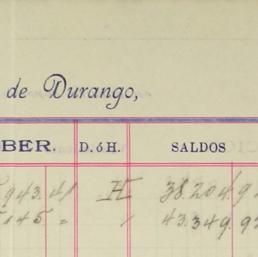 de Durango,
BER. D. ó H. SALDOS
943.41 H 38.204.9
145. " / 43.349.9